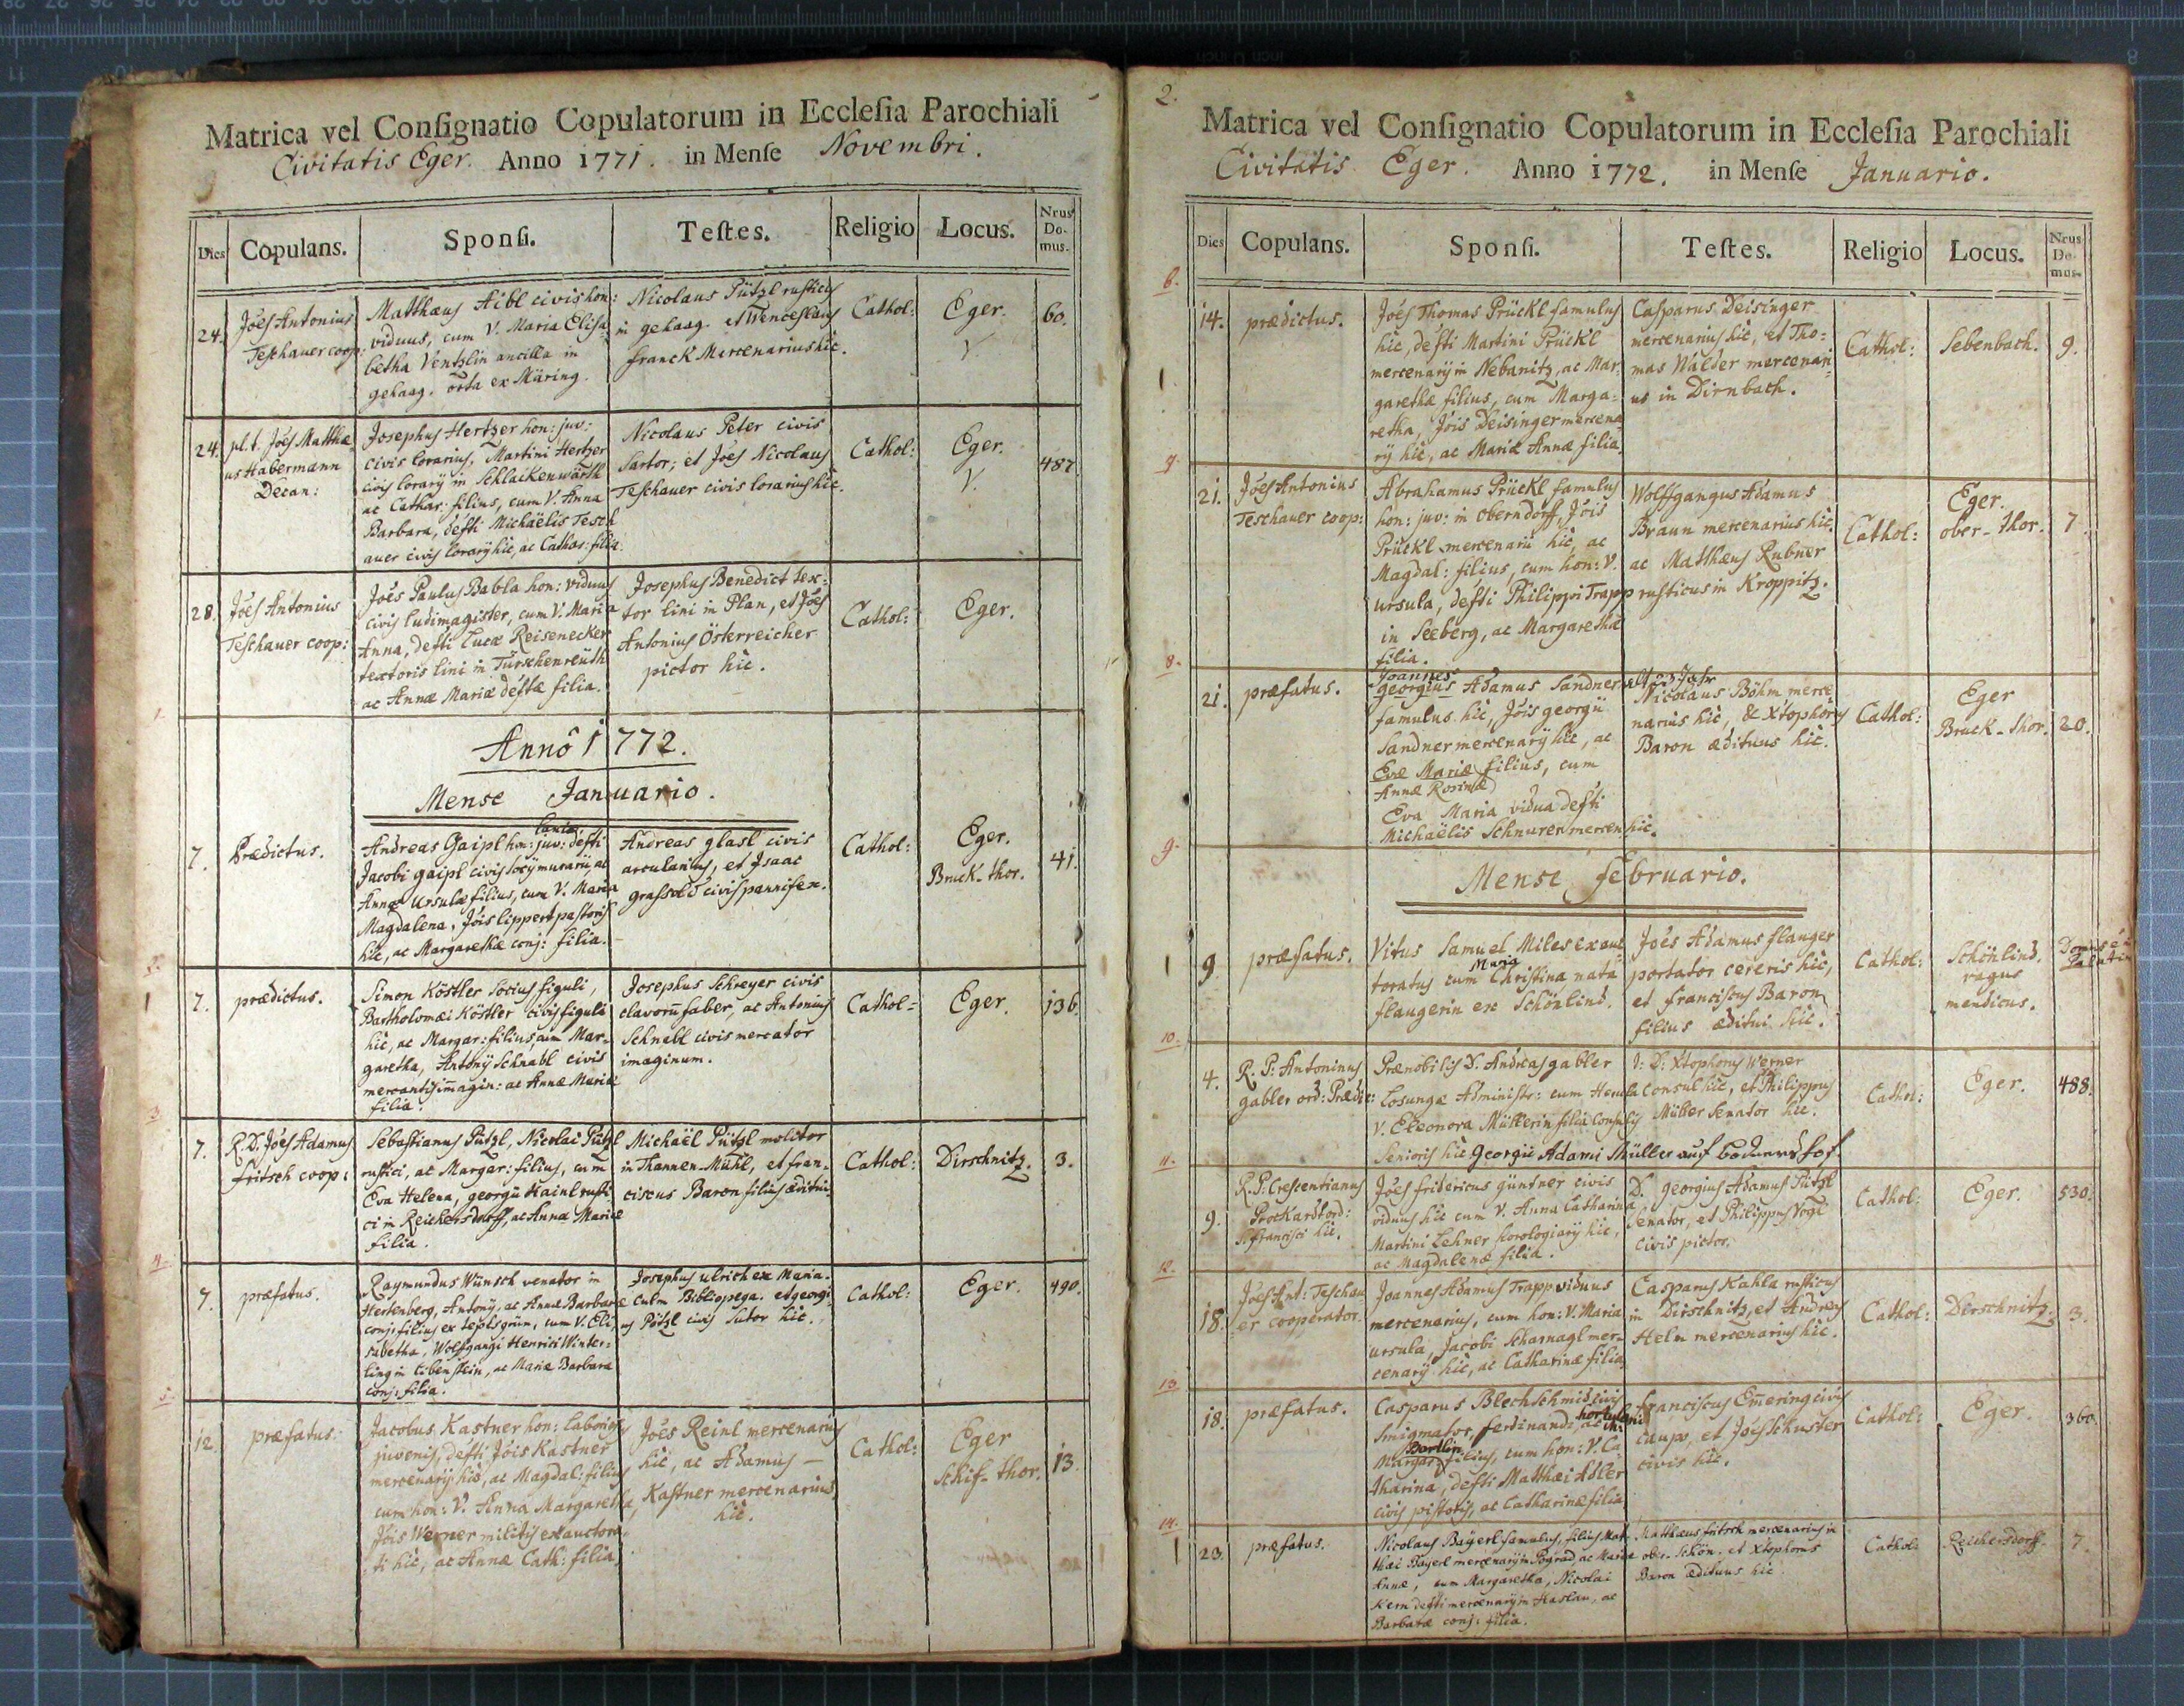 Matrica vel Conſignatio Copulatorum in Eccleſia Parochiali
Civitatis Eger. Anno 1771. in Menſe Novembri.
Dies Copulans. Sponſi. Teſtes. Religio Locus. Nrus Do- mus.
24. Jões Antonius Teschauer coop: Cathol: Eger. 60.
Matthæus Aibl civis hon:
viduus, cum V. Maria Elisa
betha Ventzlin ancilla in
gehaag. orta ex Märing.
Nicolaus Pützl rusticus
in gehaag. et Wenceslaus
Franck Mercenarius hic.
24. pl. t. Jões Matthæ
us Habermann
Decan:
Josephus Hertzer hon: juv:
civis lorarius, Martini Hertzer
civis lorarÿ in Schlackenwärth
ac Cathar: filius, cum V. Anna
Barbara, defti Michaëlis Tesch
auer civis lorarÿ hic, ac Cathar: filia.
Nicolaus Peter civis
Sartor; et Jões Nicolaus
Teschauer civis lorarius hic.
Cathol: Eger. 487.
28. Jões Antonius
Teschauer coop:
Jões Paulus Babla hon: viduus
civis ludimagister, cum V. Maria
Anna, defti Lucæ Reisenecker
textoris lini in Türschenreüth
ac Annæ Mariæ deftæ filia.
Josephus Benedict tex-
tor lini in Plan, et Jões
Antonius Österreicher
pictor hic.
Cathol: Eger.
1.
Annô 1772.
Mense Januario.
7. Prædictus.
Andreas Gaipl hon: juv: defti
Jacobi gaipl civis murarii, ac
Annæ Ursulæ filius, cum V. Maria
Magdalena, Jõis lippert pastoris
hic, ac Margarethæ conj: filia.
Andreas glasl civis
arcularius, et Isaac
grassold civis pannifex.
Cathol: Eger.
Bruck-thor. 41.
7. prædictus.
Simon Köstler Socius figuli,
Bartholomæi Köstler civis figuli
hic, ac Margar: filius, cum Mar-
garetha, Antonÿ Schnabl civis
mercantis imagin: ac Annæ Mariæ
filia.
Josephus Schreyer civis
clavorũ faber, ac Antonius
Schnabl civis mercator
imaginum.
Cathol: Eger. 136.
3.
7. R.D. Jões Adamus
Fritsch coop:
Sebastianus Pützl, Nicolai Pützl
rustici, ac Margar: filius, cum
Eva Helena, georgii Hainl rusti
ci in Reichersdorff, ac Annæ Mariæ
filia.
Michaël Pützl molitor
in Thannen-Mühl, et fran-
ciscus Baron filius æditui.
Cathol: Dirschnitz. 3.
4.
7. præfatus.
Raymundus Wünsch venator in
Hertenberg, Antonÿ, ac Annæ Barbaræ
conj: filius ex , cum V. Eli-
sabetha, Wolfgangi Henrici Winter-
ling in libenstein, ac Mariæ Barbaræ
conj: filia.
Josephus ulrich ex Maria-
Culm Bibliopega. et georgi-
us Pötzl civis Sutor hic.
Cathol: Eger. 490.
5.
12. præfatus.
Jacobus Kastner hon:
juvenis, defti Jõis Kastner
mercenarÿ hic, ac Magdal: filius
cum hon: V. Anna Margaretha,
Jõis Werner militis exauctora
ti hic, ac Annæ Cath: filia.
Jões Reinl mercenarius
hic, ac Adamus —
Kastner mercenarius
hic.
Cathol: Eger
Schif-thor. 13.
2.
Matrica vel Conſignatio Copulatorum in Eccleſia Parochiali
Civitatis Eger. Anno 1772. in Menſe Januario.
Dies Copulans. Sponſi. Teſtes. Religio Locus. Nrus Do- mus.
6.
14. prædictus.
Jões Thomas Prückl famulus
hic, defti Martini Prückl
mercenarÿ in Nebanitz, ac Mar-
garethæ filius, cum Marga-
retha, Jõis Deisinger mercena
rÿ hic, ac Mariæ Annæ filia.
Casparus Deisinger
mercenarius hic, et Tho-
mas Walder mercenari-
us in Dirnbach.
Cathol: Sebenbach. 9.
21. Jões Antonius
Teschauer coop:
Abrahamus Prückl famulus
hon: juv: in oberndorff, Jõis
Prückl mercenarii hic, ac
Magdal: filius, cum hon: V.
ursula, defti Philippi Trapp
in Seeberg, ac Margarethæ
filia.
Wolffgangus Adamus
Braun mercenarius hic,
ac Matthæus Rubner
rusticus in Kroppitz.
Cathol: Eger.
ober-thor. 7.
8.
21. præfatus.
Joannes
georgius Adamus Sandner alt 23 Jahr
famulus hic, Jõis georgii
Sandner mercenarÿ hic, ac
Evæ Mariæ filius, cum
Annæ Rosinæ
Eva Maria vidua defti
Michaëlis Schnurer mercen hic.
Nicolaus Böhm merce
narius hic, & Xtophorus
Baron ædituus hic.
Cathol: Eger
Bruck-thor. 20.
9.
Mense februario.
9. præfatus.
Vitus Samuel Miles exauc
toratus cum Maria Christina nata
flangerin ex Schönlind.
Jões Adamus flanger
portator cereris hic,
et franciscus Baron
filius æditui hic.
Cathol: Schönlind.
vagus
mendicus.
10.
4. R. P. Antoninus
gabler ord: Prædic:
Prænobilis D. Andreas gabler
Losungæ Administr: cum
V. Eleonora Müllerin filia Consulis
Senioris hic Georgii Adami Müller auf
D: Xtophorus Werner
Consul hic, et Philippus
Müller Senator hic.
Cathol: Eger. 488.
11.
9. R. P. Crescentianus
Prockard ord:
S. francisci hic.
Jões fridericus güntner civis
viduus hic cum V. Anna Catharina
Martini Lehner horologiarÿ hic,
ac Magdalenæ filia.
D. georgius Adamus Pützl
Senator, et Philippus Vogl
civis pictor.
Cathol: Eger. 530.
12.
18. Jões Ant: Teschau
er cooperator.
Joannes Adamus Trapp viduus
mercenarius, cum hon: V. Maria
ursula, Jacobi Scharnagl mer-
cenarÿ hic, ac Catharinæ filia.
Casparus Kahla rusticus
in Dirschnitz, et Andreas
Helm mercenarius hic.
Cathol: Dirschnitz. 3.
13.
18. præfatus.
Casparus Blechschmid civis
Smigmator, ferdinandi hortulani
Bartlin
Margar: filius, cum hon: V. Ca-
tharina, defti Matthæi Adler
civis pistoris, ac Catharinæ filia.
franciscus Em̃ering civis
caupo, et Jões Schuster
civis hic.
Cathol: Eger 360.
14.
23. præfatus.
Nicolaus Bayerl famulus, filius Mat-
thæi Bayerl mercenarÿ in Pograd ac Mariæ
Annæ, cum Margaretha, Nicolai
Kern defti mercenarÿ in Haslau, ac
Barbaræ conj: filia.
Matthæus fritsch mercenarius in
ober-Schön. et Xtophorus
Baron ædituus hic.
Cathol: Reichersdorff. 7.